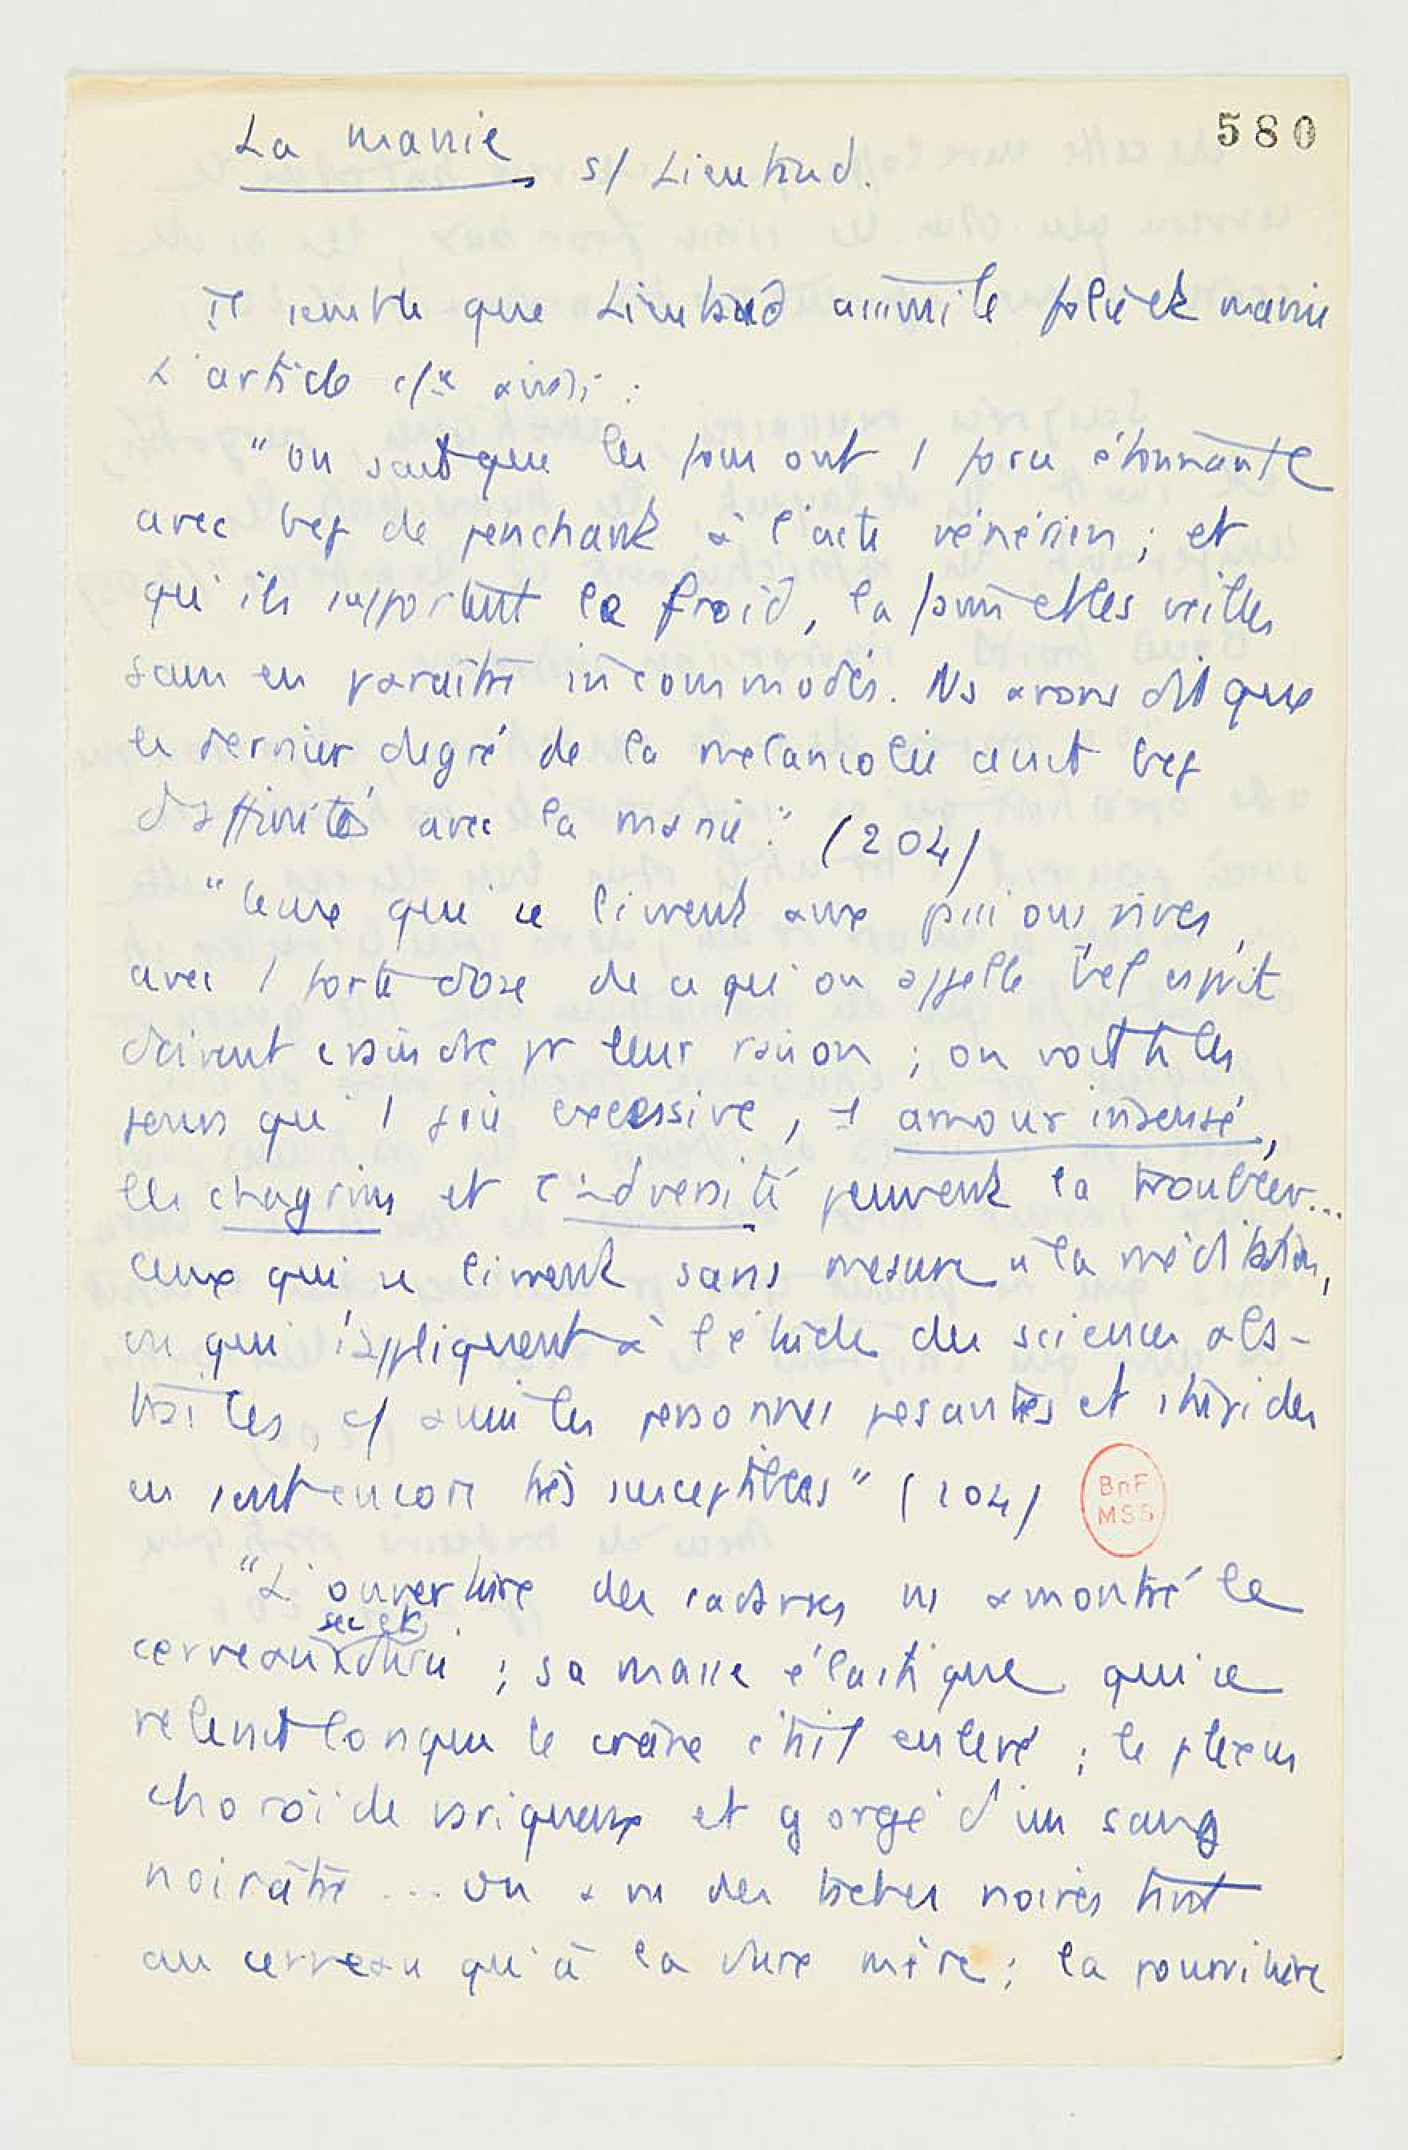 580
La manie s/ Lieutaud.
Il semble que Lieutaud assimile folie et manie
L'article c/ce ainsi :
"On sait que les fous ont 1 force étonnante
avec bcp de penchant à l'acte vénérien ; et
qu'ils supportent le froid, la faim et les veilles
sans en paraître incommodés. Ns avons dit que
le dernier degré de la mélancolie avait bcp
d'affinités avec la manie." (204)
"Ceux qui se livrent aux passions vives,
avec 1 forte dose de ce qu'on appelle bel esprit
doivent craindre pr leur raison ; on voit ts les
jours qu' 1 joie excessive, 1 amour insensé,
les chagrins et l'adversité peuvent la troubler...
Ceux qui se livrent sans mesure à la méditation,
ou qui s'appliquent à l'étude des sciences abs-
traites, c/ aussi les personnes pesantes et stupides
en sont encore très susceptibles" (204)
BnF
MSS
"L'ouverture des cadavres ns a montré le
cerveau sec et durci ; sa masse élastique qui se
relevait lorsque le crâne était enlevé ; le plexus
choroïde variqueux et gorgé d'un sang
noirâtre ... On a vu des taches noires tant
au cerveau qu'à la dure mère ; la pourriture